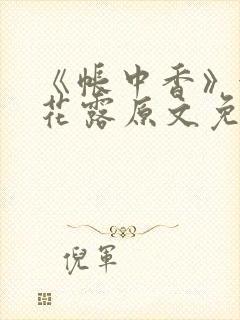 《帐中香》
花露原文免
倪军